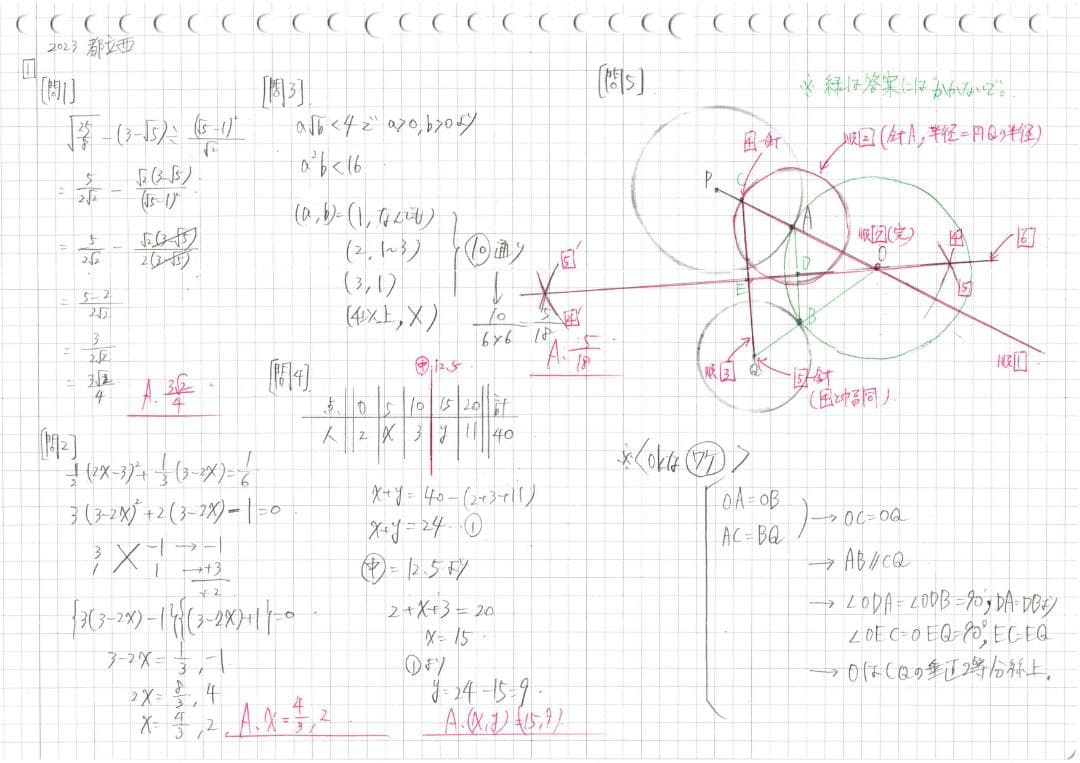 2023 都立西
1
[問1]
√(25/8) - (3-√5) ÷ (√5-1)²/√2
= 5/2√2 - √2(3-√5)/(√5-1)²
= 5/2√2 - √2(3-√5)/2(3-√5)
= 5-2/2√2
= 3/2√2
= 3√2/4
A. 3√2/4
[問2]
1/2(2x-3)² + 1/3(3-2x) = 1/6
3(3-2x)² + 2(3-2x) - 1 = 0
3 -1 → -1
1 1 → +3
+2
{3(3-2x)-1}{(3-2x)+1} = 0
3-2x = 1/3, -1
2x = 8/3, 4
x = 4/3, 2
A. x = 4/3, 2
[問3]
a√b < 4 で a>0, b>0より
a²b < 16
(a, b) = (1, なんでも)
(2, 1~3)
(3, 1)
(4以上, X)
10通り
↓
10/6×6 = 5/18
A. 5/18
[問4]
中 12.5
点 0 5 10 15 20 計
人 2 x 3 y 11 40
x+y = 40-(2+3+11)
x+y = 24 … ①
中 = 12.5より
2+x+3 = 20
x = 15
①より
y = 24-15 = 9.
A. (x, y) = (15, 9)
[問5]
※ 緑は答案にはかかないで。
順2 (針A, 半径=円Qの半径)
4-針
P
C
A
順7(完)
O
4
6
5
D
5'
E
4'
B
順3
Q
5-針
(4と幅同)
順1
※<OKなワケ>
OA=OB
AC=BQ
→ OC=OQ
→ AB∥CQ
→ ∠ODA=∠ODB=90°, DA=DBより
∠OEC=OEQ=90°, EC=EQ
→ OはCQの垂直2等分線上.